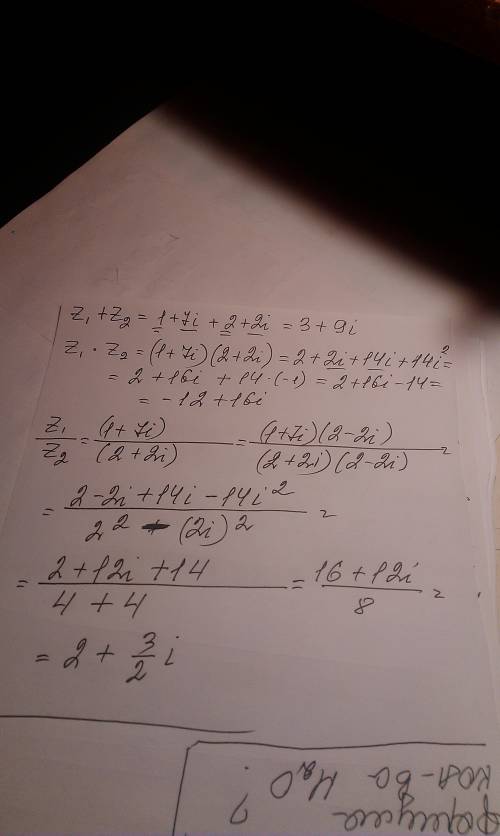 z₁+z₂ = 1+7i + 2+2i = 3+9i
z₁·z₂ = (1+7i)(2+2i) = 2+2i+14i+14i²=
= 2+16i +14·(-1) = 2+16i-14=
= -12+16i
z₁/z₂ = (1+7i)/(2+2i) = (1+7i)(2-2i)/(2+2i)(2-2i) =
= 2-2i+14i-14i²/2² - (2i)² =
= 2+12i+14/4+4 = 16+12i/8 =
= 2 + 3/2 i
формула
кол-ва H₂O ?